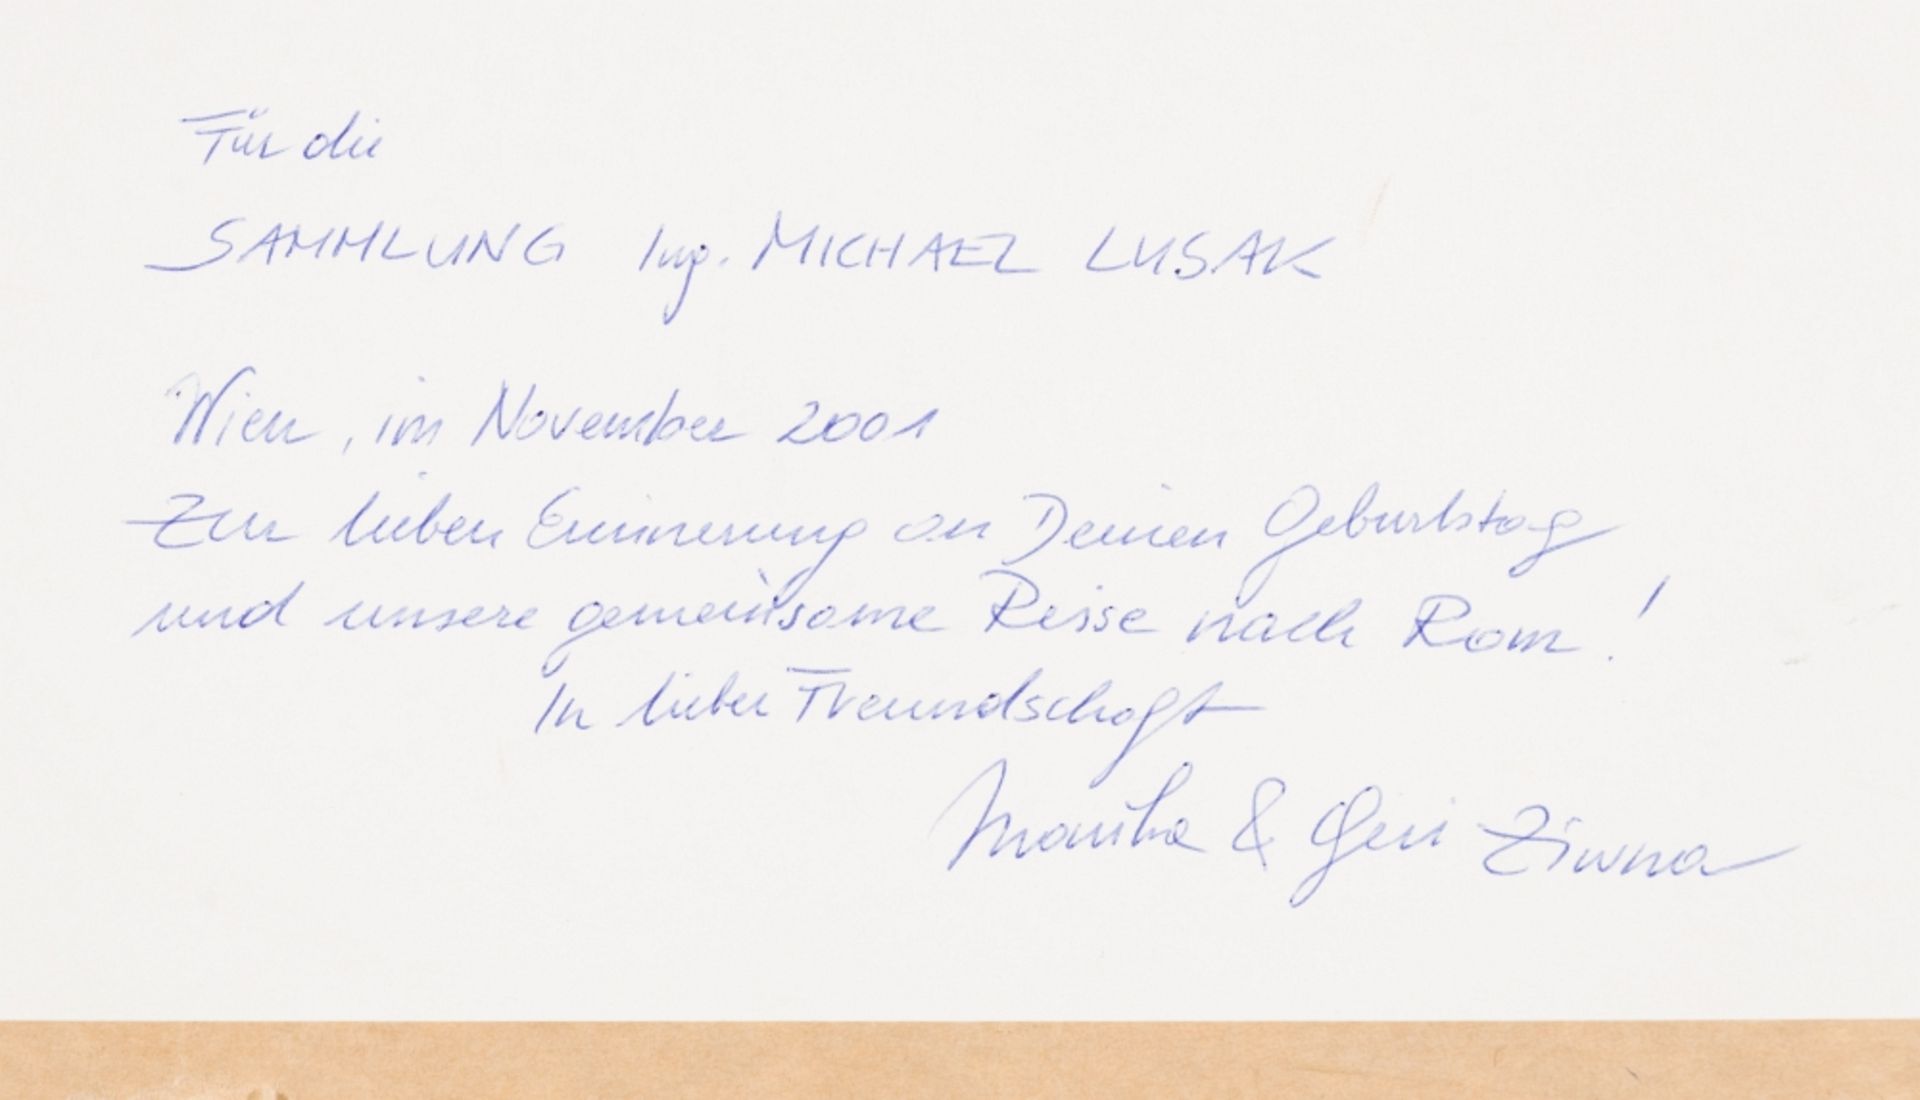 Für die
SAMMLUNG Ing. MICHAEL LUSAK
Wien, im November 2001
Zur lieben Erinnerung an Deinen Geburtstag
und unsere gemeinsame Reise nach Rom!
In lieber Freundschaft
Monika & Geri Ziwna